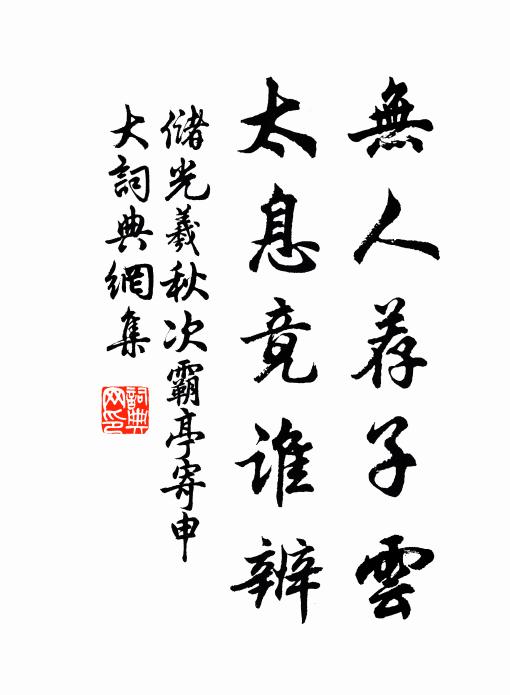 無人荐子雲
太息竟谁辨
儲光羲秋次霸亭寄申
大詞典網集
詞典
网印